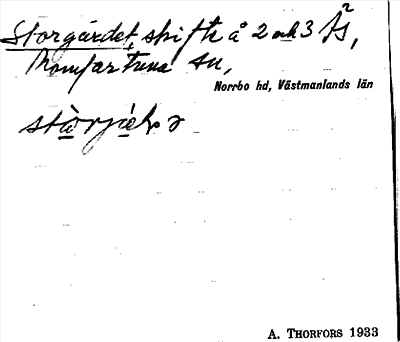 Storgärdet skifte å 2 och 3 Ås,
Romfartuna sn,
Norrbo hd, Västmanlands län
A. THORFORS 1933